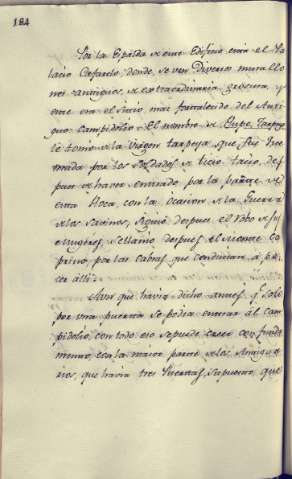 184
Por la Espalda de este Edificio está el Pa
lacio Cafarelo, donde se ven Diversos murallo
nes antiguos, de extraordinaria grosura, y
este era el sitio más fortalecido del Anti
guo Campidolio. El nombre de Rupe Tarpeya
le tomó de la Virgen Tarpeya que fue
mada por los Soldados de Ticio Tacio, des
pues de haver entrado por la parte de
esta Roca, con la ocasion de la Guerra
de los Savinos, siguió despues el robo de sus
mugeres, se llamó despues el monte Ca
prino, por las Cabras que conducian á pa
cer alli.
Aun que havia dicho antes, q.e solo
por una puerta se podia entrar al Cam
pidolio, con todo eso se puede creer con funda
mento, con la maior parte de los Antiquo
rios, que havia tres Puertas, supuesto que